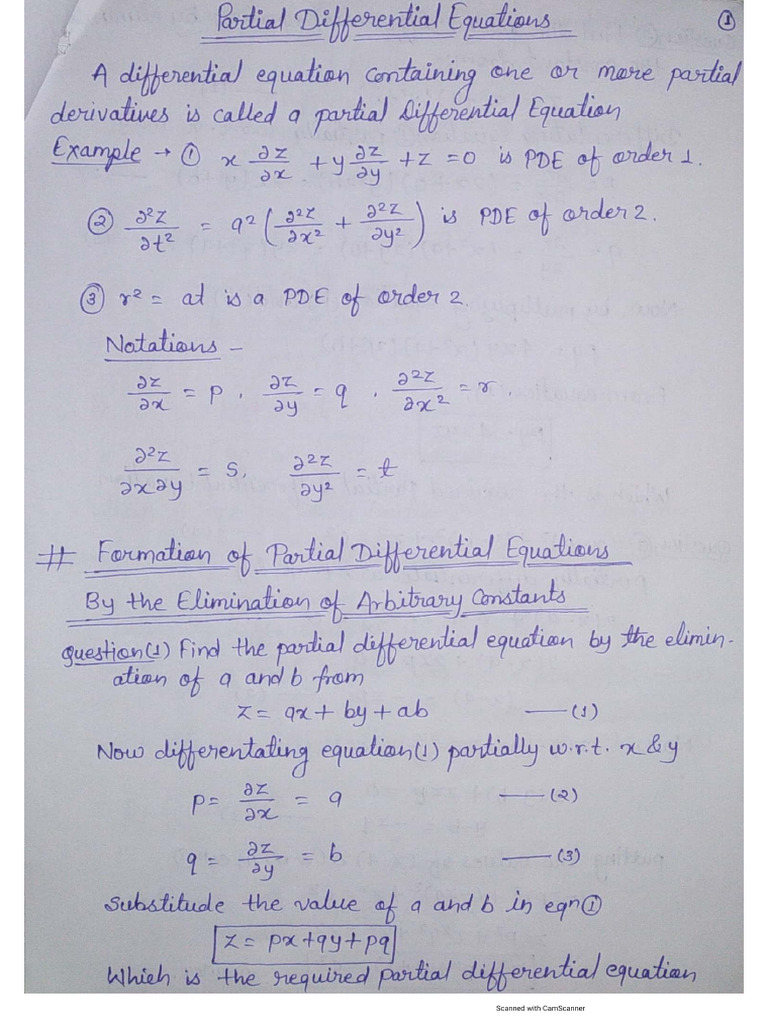 Partial Differential Equations ①
A differential equation containing one or more partial
derivatives is called a partial Differential Equation
Example → ① x ∂z/∂x + y ∂z/∂y + z = 0 is PDE of order 1.
② ∂²z/∂t² = a² (∂²z/∂x² + ∂²z/∂y²) is PDE of order 2.
③ r² = at is a PDE of order 2.
Notations –
∂z/∂x = p, ∂z/∂y = q, ∂²z/∂x² = r,
∂²z/∂x∂y = s, ∂²z/∂y² = t
# Formation of Partial Differential Equations
By the Elimination of Arbitrary Constants
question(1) Find the partial differential equation by the elimin-
ation of a and b from
z = ax + by + ab —(1)
Now differentating equation(1) partially w.r.t. x & y
p = ∂z/∂x = a —(2)
q = ∂z/∂y = b —(3)
Substitude the value of a and b in eqn①
z = px+qy+pq
Which is the required partial differential equation
Scanned with CamScanner